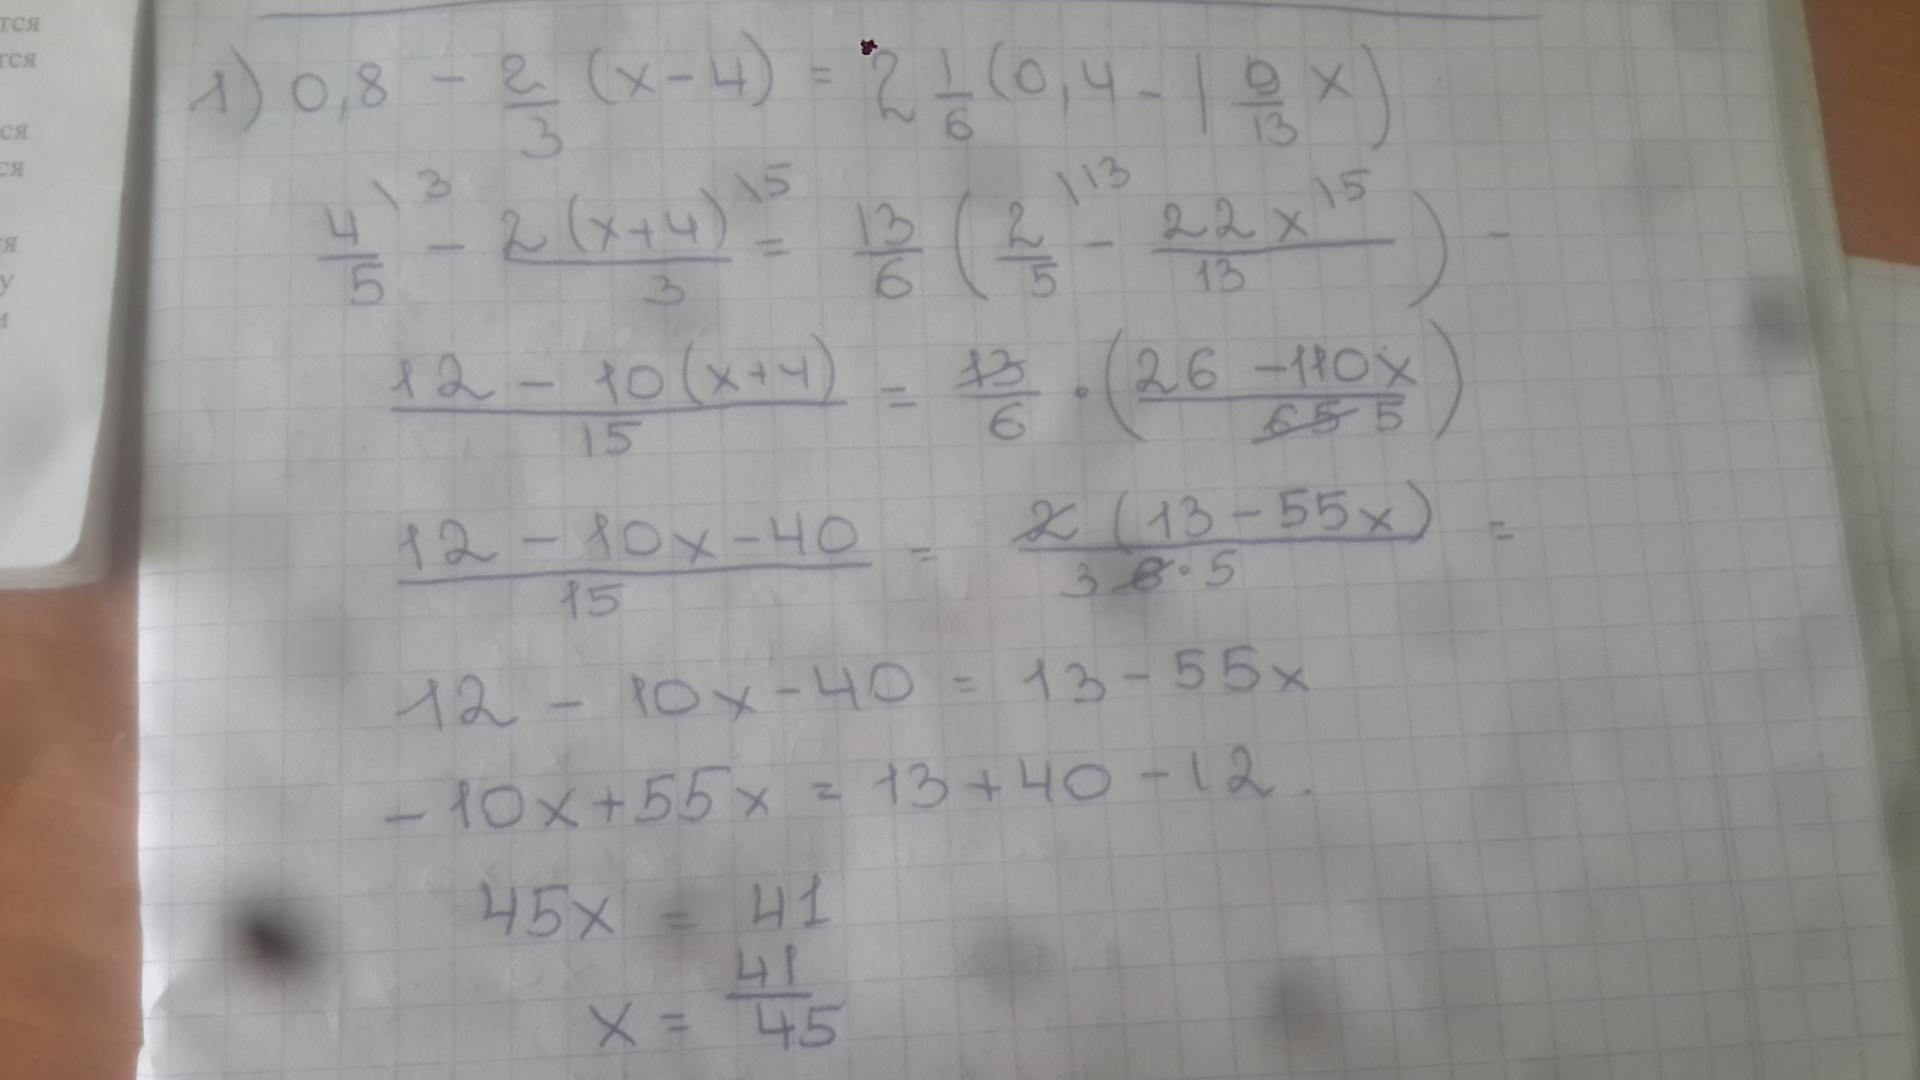 тся
тся
ся
ся
я
у
и
1) 0,8 - 2/3 (x-4) = 2 1/6 (0,4 - 1 9/13 x)
4/5 \3 - 2(x+4)/3 \5 = 13/6 (2/5 \13 - 22x/13 \5) -
12 - 10(x+4)/15 = 13/6 · (26 - 110x/65 5)
12 - 10x - 40/15 = 2(13 - 55x)/3 6·5 =
12 - 10x - 40 = 13 - 55x
-10x + 55x = 13 + 40 - 12.
45x = 41
x = 41/45